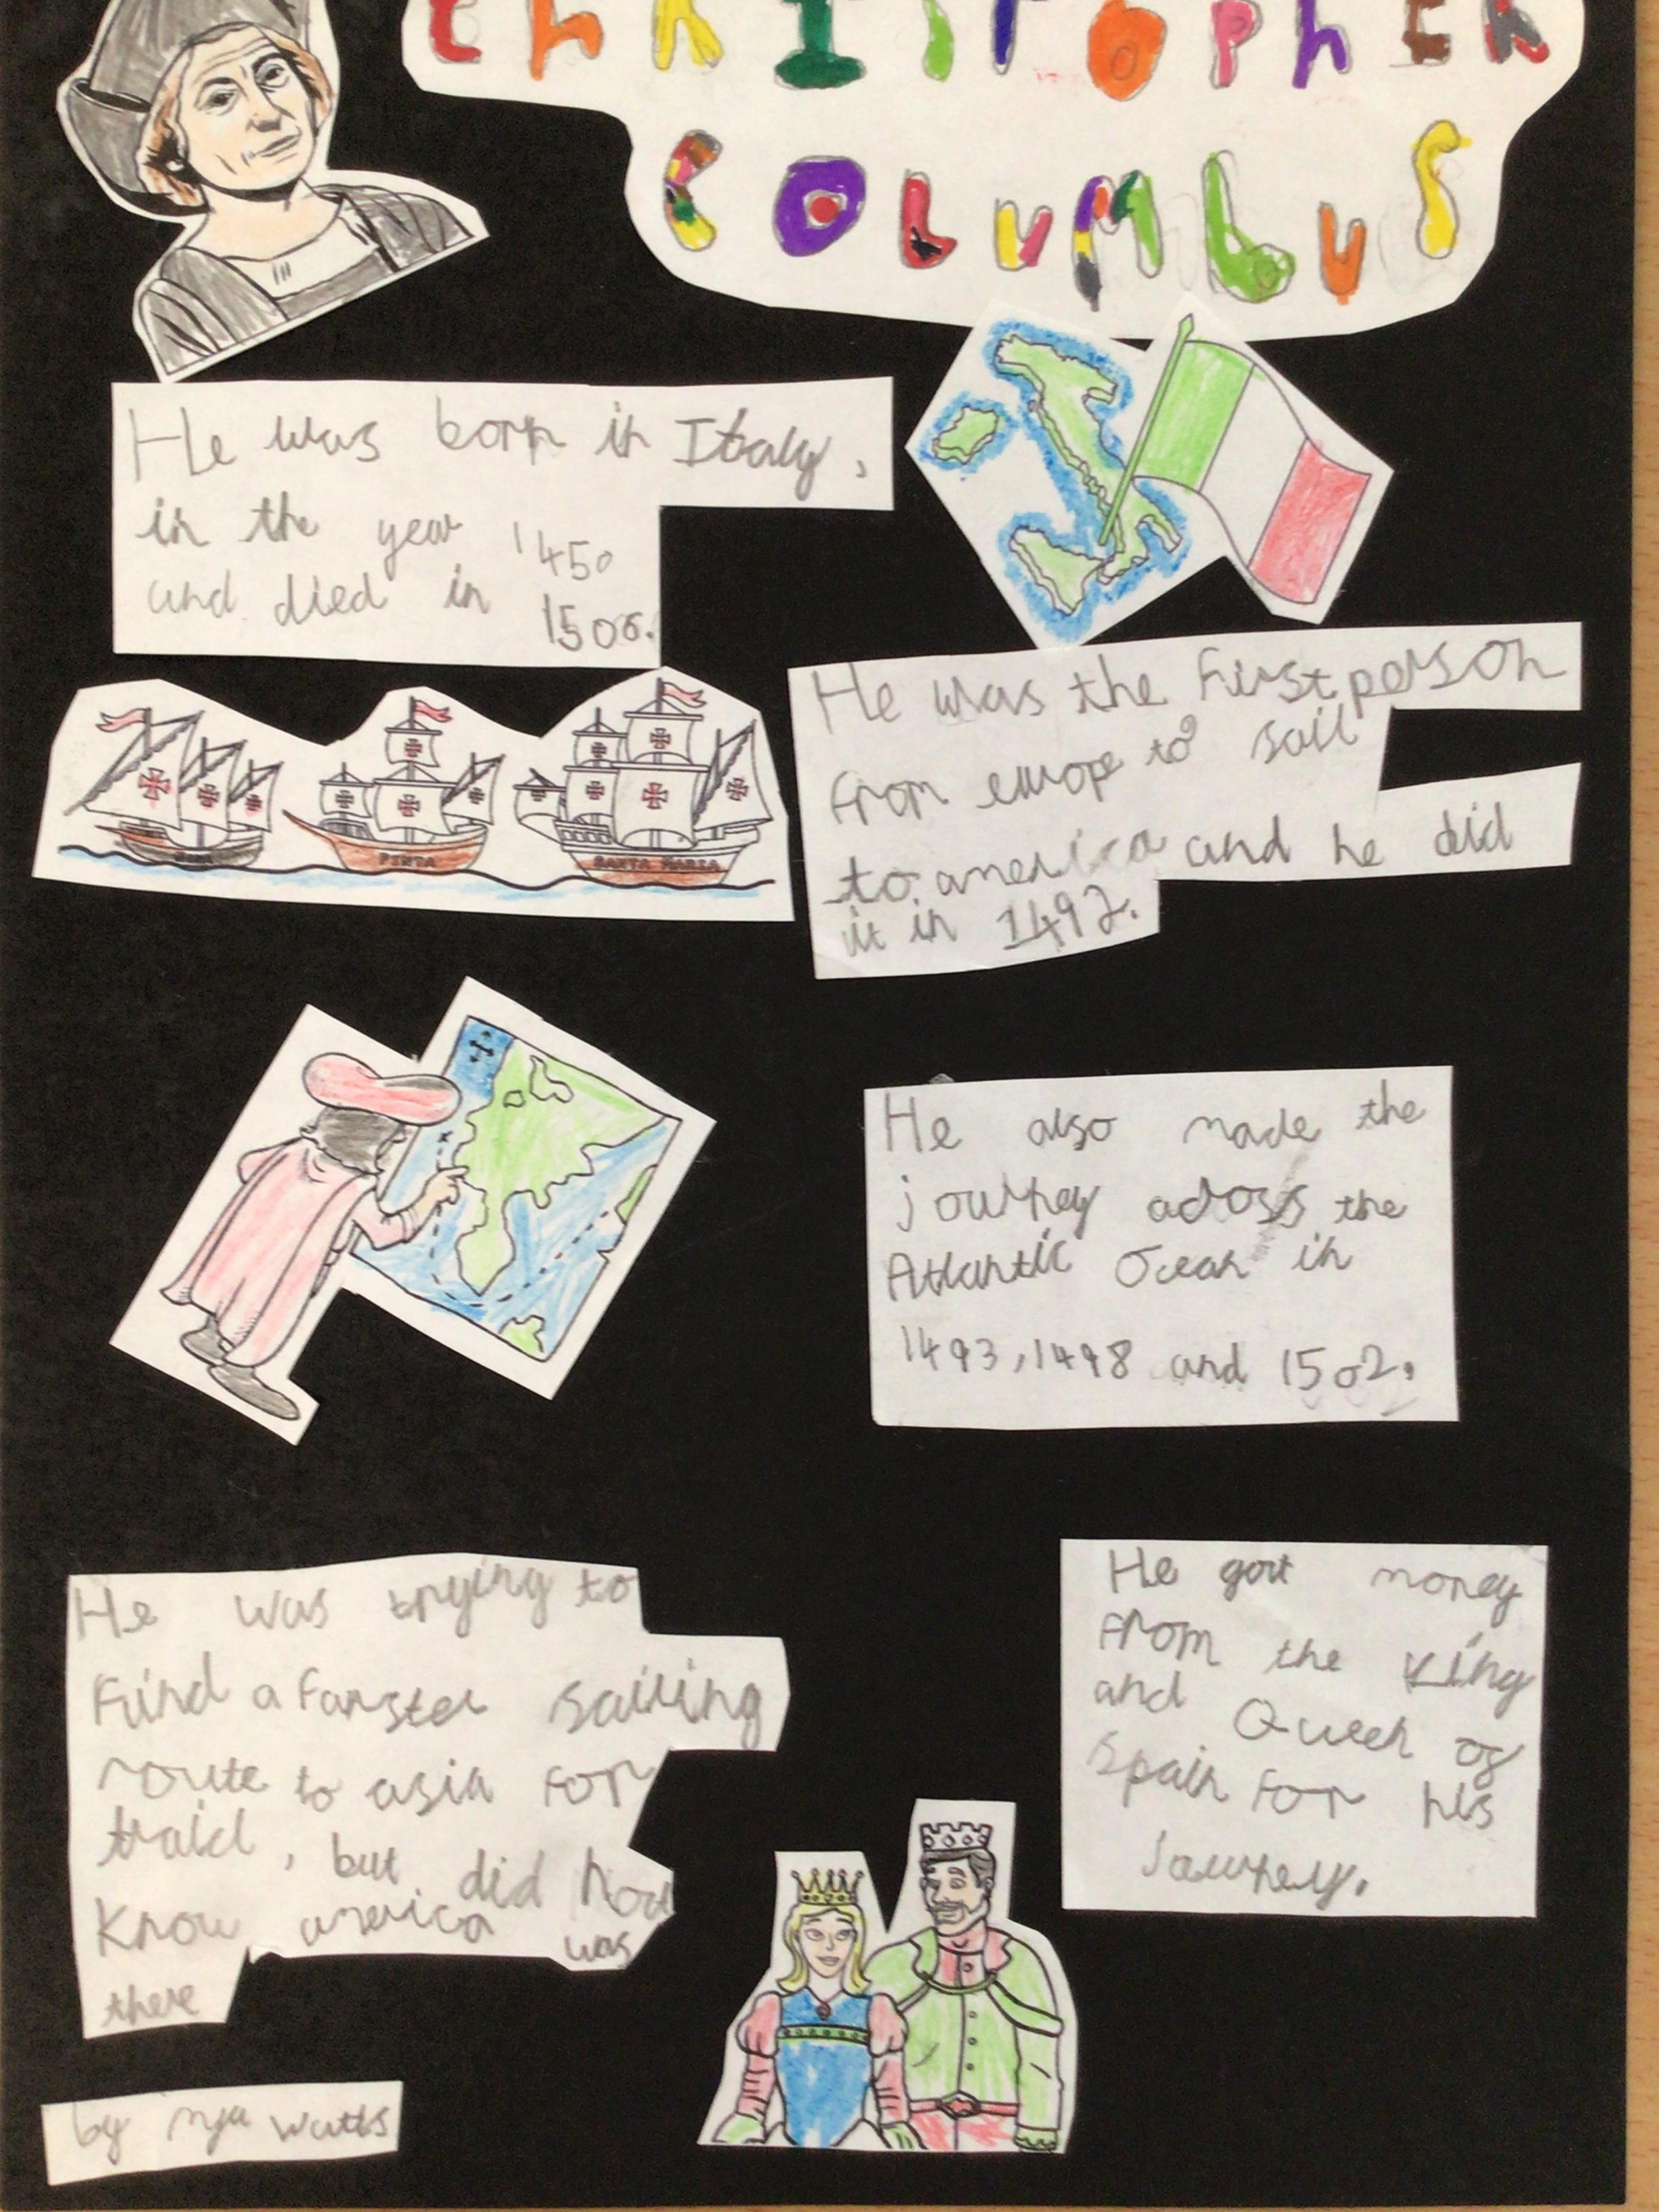 CHRISTOPHER
COLUMbUS
He was born in Italy,
in the year 1450
and died in 1506.
PINTA
SANTA MARIA
He was the first person
from europe to sail
to america and he did
it in 1492.
He also made the
journey across the
Atlantic Ocean in
1493, 1498 and 1502.
He was trying to
find a farster sailing
route to asia for
traid, but did not
know america was
there
He got money
from the King
and Queen of
Spain for his
Jawrney.
by nya watts